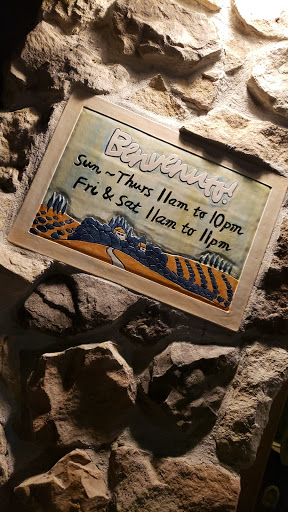 Benvenuti!
Sun ~ Thurs 11am to 10pm
Fri & Sat 11am to 11pm